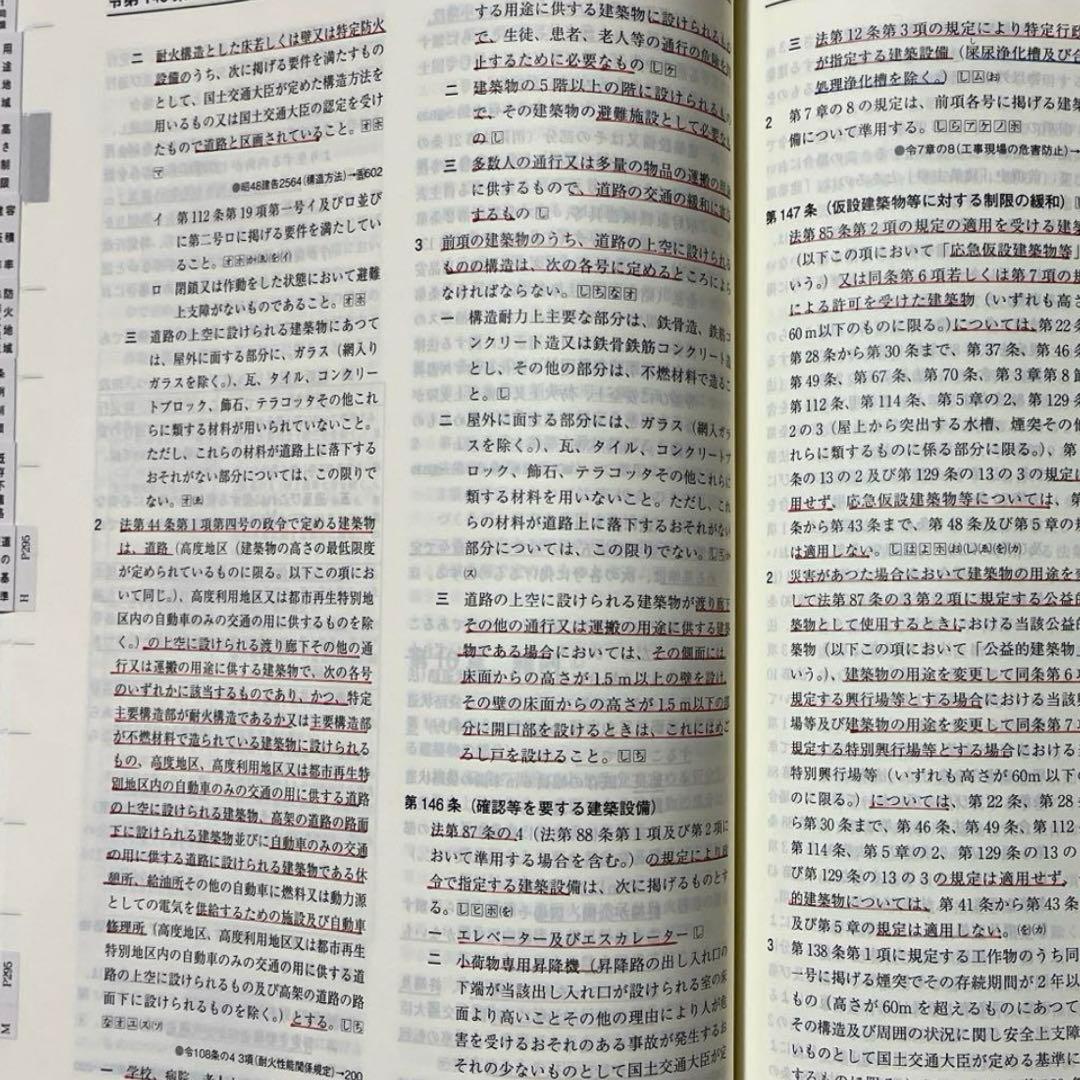 二 耐火構造とした床若しくは壁又は特定防火
設備のうち、次に掲げる要件を満たすもの
として、国土交通大臣が定めた構造方法を
用いるもの又は国土交通大臣の認定を受け
たもので道路と区画されていること。
●昭48建告2564(構造方法)→告602
イ 第112条第19項第一号イ及びロ並び
に第二号ロに掲げる要件を満たしてい
ること。
ロ 閉鎖又は作動をした状態において避難
上支障がないものであること。
三 道路の上空に設けられる建築物にあつて
は、屋外に面する部分に、ガラス(網入り
ガラスを除く。)、瓦、タイル、コンクリー
トブロック、飾石、テラコッタその他これ
らに類する材料が用いられていないこと。
ただし、これらの材料が道路上に落下する
おそれがない部分については、この限りで
ない。
2 法第44条第1項第四号の政令で定める建築物
は、道路(高度地区(建築物の高さの最低限度
が定められているものに限る。以下この項にお
いて同じ。)、高度利用地区又は都市再生特別地
区内の自動車のみの交通の用に供するものを除
く。)の上空に設けられる渡り廊下その他の通
行又は運搬の用途に供する建築物で、次の各号
のいずれかに該当するものであり、かつ、特定
主要構造部が耐火構造であるか又は主要構造部
が不燃材料で造られている建築物に設けられる
もの、高度地区、高度利用地区又は都市再生特
別地区内の自動車のみの交通の用に供する道路
の上空に設けられる建築物、高架の道路の路面
下に設けられる建築物並びに自動車のみの交通
の用に供する道路に設けられる建築物である休
憩所、給油所その他の自動車に燃料又は動力源
としての電気を供給するための施設及び自動車
修理所(高度地区、高度利用地区又は都市再生
特別地区内の自動車のみの交通の用に供する道
路の上空に設けられるもの及び高架の道路の路
面下に設けられるものを除く。)とする。
●令108条の4 3項(耐火性能関係規定)→200
一 学校、病院、
する用途に供する建築物に設けられるも
で、生徒、患者、老人等の通行の危険を
止するために必要なもの
二 建築物の5階以上の階に設けられるもの
で、その建築物の避難施設として必要なも
の
三 多数人の通行又は多量の物品の運搬の用
に供するもので、道路の交通の緩和に
するもの
3 前項の建築物のうち、道路の上空に設けられる
ものの構造は、次の各号に定めるところによら
なければならない。
一 構造耐力上主要な部分は、鉄骨造、鉄筋コ
ンクリート造又は鉄骨鉄筋コンクリート造
とし、その他の部分は、不燃材料で造るこ
と。
二 屋外に面する部分には、ガラス(網入ガラ
スを除く。)、瓦、タイル、コンクリートブ
ロック、飾石、テラコッタその他これらに
類する材料を用いないこと。ただし、これ
らの材料が道路上に落下するおそれがない
部分については、この限りでない。
三 道路の上空に設けられる建築物が渡り廊下
その他の通行又は運搬の用途に供する建築
物である場合においては、その側面には
床面からの高さが1.5m以上の壁を設け、
その壁の床面からの高さが1.5m以下の部
分に開口部を設けるときは、これにはめご
ろし戸を設けること。
第146条(確認等を要する建築設備)
法第87条の4(法第88条第1項及び第2項に
おいて準用する場合を含む。)の規定により政
令で指定する建築設備は、次に掲げるものとす
る。
一 エレベーター及びエスカレーター
二 小荷物専用昇降機(昇降路の出し入れ口の
下端が当該出し入れ口が設けられる室の床
面より高いことその他の理由により人が危
害を受けるおそれのある事故が発生するお
それの少ないものとして国土交通大臣が定
三 法第12条第3項の規定により特定行政
が指定する建築設備(屎尿浄化槽及び合
処理浄化槽を除く。)
2 第7章の8の規定は、前項各号に掲げる建築
備について準用する。
●令7章の8(工事現場の危害防止)→
第147条(仮設建築物等に対する制限の緩和)
法第85条第2項の規定の適用を受ける建築
(以下この項において「応急仮設建築物等」
いう。)又は同条第6項若しくは第7項の規
による許可を受けた建築物(いずれも高さ
60m以下のものに限る。)については、第22条
第28条から第30条まで、第37条、第46条
第49条、第67条、第70条、第3章第8節
第112条、第114条、第5章の2、第129条
2の3(屋上から突出する水槽、煙突その他
れらに類するものに係る部分に限る。)、第
条の13の2及び第129条の13の3の規定は
用せず、応急仮設建築物等については、第
条から第43条まで、第48条及び第5章の規
は適用しない。
2 災害があつた場合において建築物の用途を
して法第87条の3第2項に規定する公益的
築物として使用するときにおける当該公益的
築物(以下この項において「公益的建築物」
いう。)、建築物の用途を変更して同条第6項
規定する興行場等とする場合における当該
場等及び建築物の用途を変更して同条第7
規定する特別興行場等とする場合における
特別興行場等(いずれも高さが60m以下
のに限る。)については、第22条、第28
ら第30条まで、第46条、第49条、第112
第114条、第5章の2、第129条の13の
び第129条の13の3の規定は適用せず、
的建築物については、第41条から第43条
及び第5章の規定は適用しない。
3 第138条第1項に規定する工作物のうち同
一号に掲げる煙突でその存続期間が2年以
もの(高さが60mを超えるものにあつて
その構造及び周囲の状況に関し安全上支障
いものとして国土交通大臣が定める基準に
P295
H
P295
M